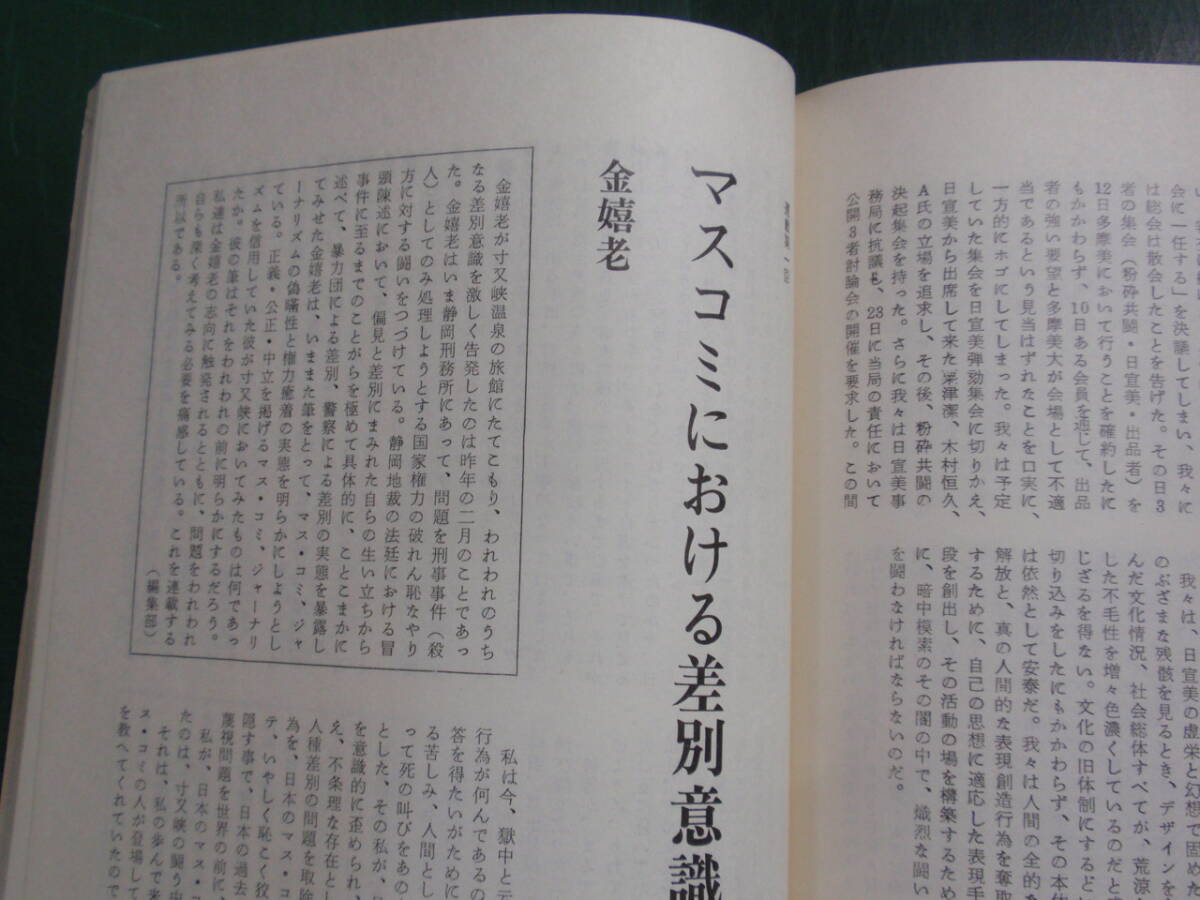 会に一任する」を決議してしまい、我々に
は総会は散会したことを告げた。その日3
者の集会（粉砕共闘・日宣美・出品者）を
12日多摩美において行うことを確約したに
もかかわらず、10日ある会員を通じて、出品
者の強い要望と多摩美大が会場として不適
当であるという見当はずれたことを口実に、
一方的にホゴにしてしまった。我々は予定
していた集会を日宣美弾劾集会に切りかえ、
日宣美から出席して来た粟津潔、木村恒久、
A氏の立場を追求し、その後、粉砕共闘の
決起集会を持った。さらに我々は日宣美事
務局に抗議し、23日に当局の責任において
公開3者討論会の開催を要求した。この間
我々は、日宣美の虚栄と幻想で固めた
のぶざまな残骸を見るとき、デザインを
んだ文化情況、社会総体すべてが、荒涼
した不毛性を増々色濃くしているのだと
じざるを得ない。文化の旧体制にするど
切り込みをしたにもかかわらず、その本体
は依然として安泰だ。我々は人間の全的な
解放と、真の人間的な表現創造行為を奪取
するために、自己の思想に適応した表現手
段を創出し、その活動の場を構築するため
に、暗中模索のその闇の中で、熾烈な闘い
を闘わなければならないのだ。
マスコミにおける差別意識
金嬉老
金嬉老が寸又峡温泉の旅館にたてこもり、われわれのうち
なる差別意識を激しく告発したのは昨年の二月のことであっ
た。金嬉老はいま静岡刑務所にあって、問題を刑事事件（殺
人）としてのみ処理しようとする国家権力の破れん恥なやり
方に対する闘いをつづけている。静岡地裁の法廷における冒
頭陳述において、偏見と差別にまみれた自らの生い立ちから
事件に至るまでのことがらを極めて具体的に、ことこまかに
述べて、暴力団による差別、警察による差別の実態を暴露し
てみせた金嬉老は、いままた筆をとって、マス・コミ、ジャ
ーナリズムの偽瞞性と権力癒着の実態を明らかにしようとし
ている。正義・公正・中立を掲げるマス・コミ、ジャーナリ
ズムを信用していた彼が寸又峡においてみたものは何であっ
たか。彼の筆はそれをわれわれの前に明らかにするだろう。
私達は金嬉老の志向に触発されるとともに、問題をわれわれ
自らも深く考えてみる必要を痛感している。これを連載する
所以である。
（編集部）
私は今、獄中と云
行為が何んであるの
答を得たいがために
る苦しみ、人間とし
って死の叫びをあの
とした、その私が、
を意識的に歪められ、
え、不条理な存在とし
人種差別の問題を取除
為を、日本のマス・コ
テ、いやしく恥こく狡
隠す事で、日本の過去
蔑視問題を世界の前に、
私が、日本のマス・
たのは、寸又峡の闘う中
それは、私の歩んで来
ス・コミの人が登場して
を教へてくれていたので